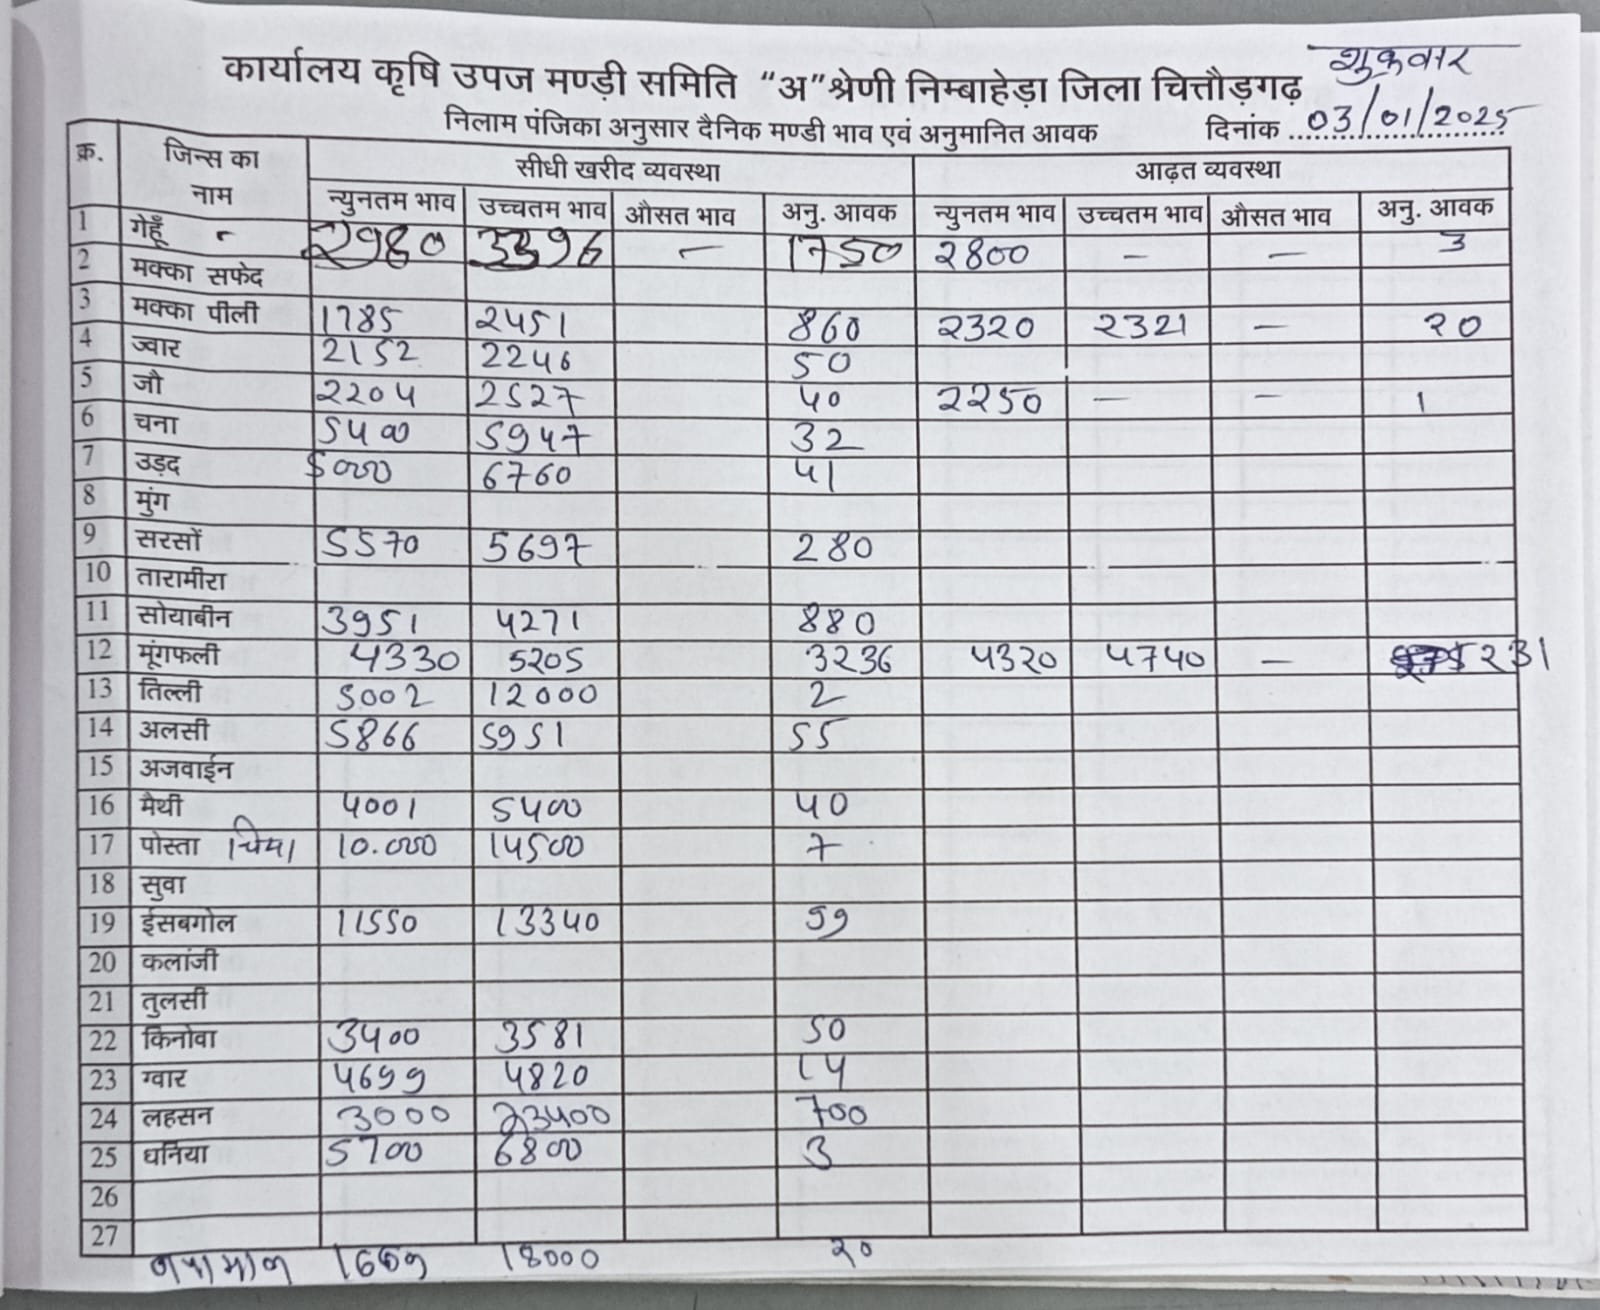 शुक्रवार
कार्यालय कृषि उपज मण्डी समिति "अ" श्रेणी निम्बाहेड़ा जिला चित्तौड़गढ़
निलाम पंजिका अनुसार दैनिक मण्डी भाव एवं अनुमानित आवक दिनांक 03/01/2025
क्र. जिन्स का नाम सीधी खरीद व्यवस्था आढ़त व्यवस्था
न्युनतम भाव उच्चतम भाव औसत भाव अनु. आवक न्युनतम भाव उच्चतम भाव औसत भाव अनु. आवक
1 गेहूँ 2980 3396 - 1750 2800 - - 3
2 मक्का सफेद
3 मक्का पीली 1785 2451 860 2320 2321 - 20
4 ज्वार 2152 2246 50
5 जौ 2204 2527 40 2250 - - 1
6 चना 5400 5947 32
7 उड़द 5000 6760 41
8 मुंग
9 सरसों 5570 5697 280
10 तारामीरा
11 सोयाबीन 3951 4271 880
12 मूंगफली 4330 5205 3236 4320 4740 - 231
13 तिल्ली 5002 12000 2
14 अलसी 5866 5951 55
15 अजवाईन
16 मैथी 4001 5400 40
17 पोस्ता 10.000 14500 7
18 सुवा
19 ईसबगोल 11550 13340 59
20 कलांजी
21 तुलसी
22 किनोवा 3400 3581 50
23 ग्वार 4699 4820 14
24 लहसन 3000 23400 700
25 धनिया 5700 6800 3
26
27
18000 20